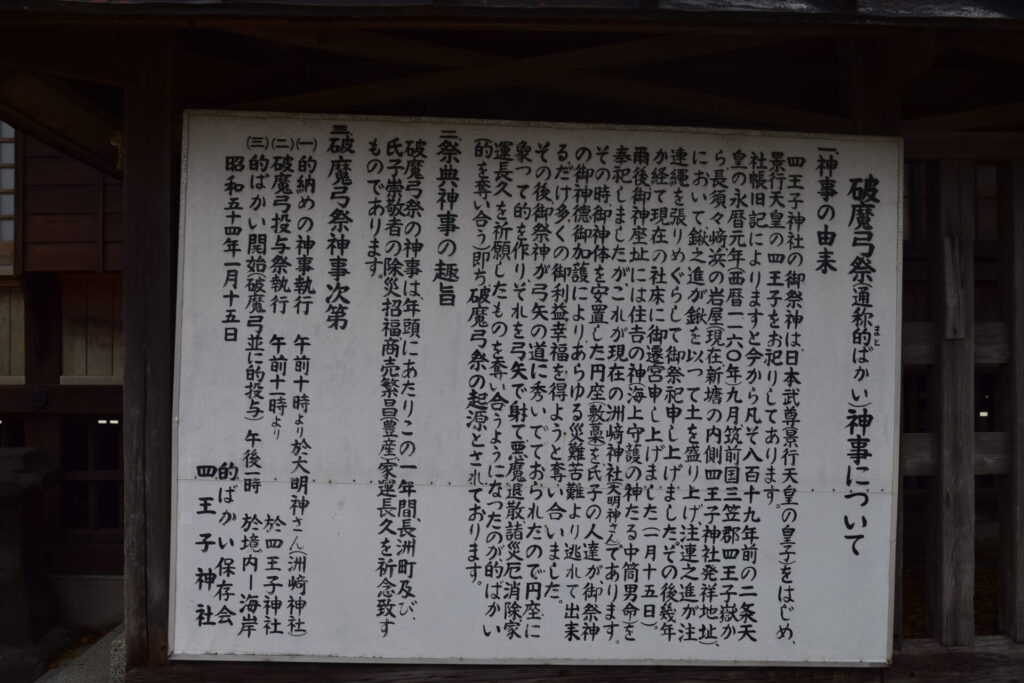 破魔弓祭(通称的ばかい)神事について
まと
一、神事の由来
四王子神社の御祭神は日本武尊(景行天皇の皇子)をはじめ、
景行天皇の四王子をお祀りしてあります。
社帳旧記によりますと今から凡そ八百十九年前の二条天
皇の永暦元年(西暦一一六〇年)九月筑前国三笠郡四王子嶽か
ら長須々崎浜の岩屋(現在新塘の内側四王子神社発祥地址)
において鍬之進が鍬を以って土を盛り上げ注連之進が注
連縄を張りめぐらして御祭祀申し上げました。その後幾年
か経て現在の社床に御遷宮申し上げました(一月十五日)。
爾後御神座址には住吉の神(海上守護の神たる中筒男命)を
奉祀しましたがこれが現在の洲崎神社(大明神さん)であります。
その時御神体を安置した円座(敷藁)を氏子の人達が御祭神
の御神徳御加護によりあらゆる災難苦難より逃れて出来
るだけ多くの御利益幸福を得ようと奪い合いました。
その後御祭神が弓矢の道に秀いでておられたので円座に
象って的を作りそれを弓矢で射て悪魔退散諸災厄消除家
運長久を祈願したものを奪い合うようになったのが的ばかい
(的を奪い合う)即ち破魔弓祭の起源とされております。
二、祭典神事の趣旨
破魔弓祭の神事は、年頭にあたりこの一年間、長洲町及び、
氏子崇敬者の除災招福商売繁昌豊産家運長久を祈念致す
ものであります。
三、破魔弓祭神事次第
(一)的納めの神事執行 午前十時より於大明神さん(洲崎神社)
(二)破魔弓投与祭執行 午前十一時より 於四王子神社
(三)的ばかい開始(破魔弓並に的投与) 午後一時 於境内ー海岸
昭和五十四年一月十五日
的ばかい保存会
四王子神社